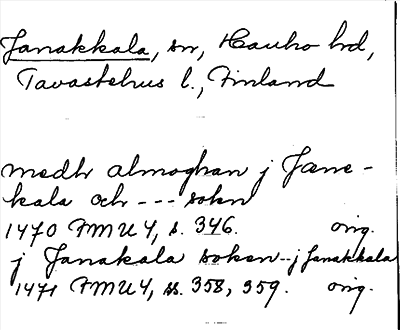 Janakkala, sn, Hauho hd,
Tavastehus l., Finland
medh almoghan j Jane-
kala och --- sokn
1470 FMU 4, s. 346. orig.
j Janakala soken -- j Janakkala
1471 FMU 4, ss. 358, 359. orig.